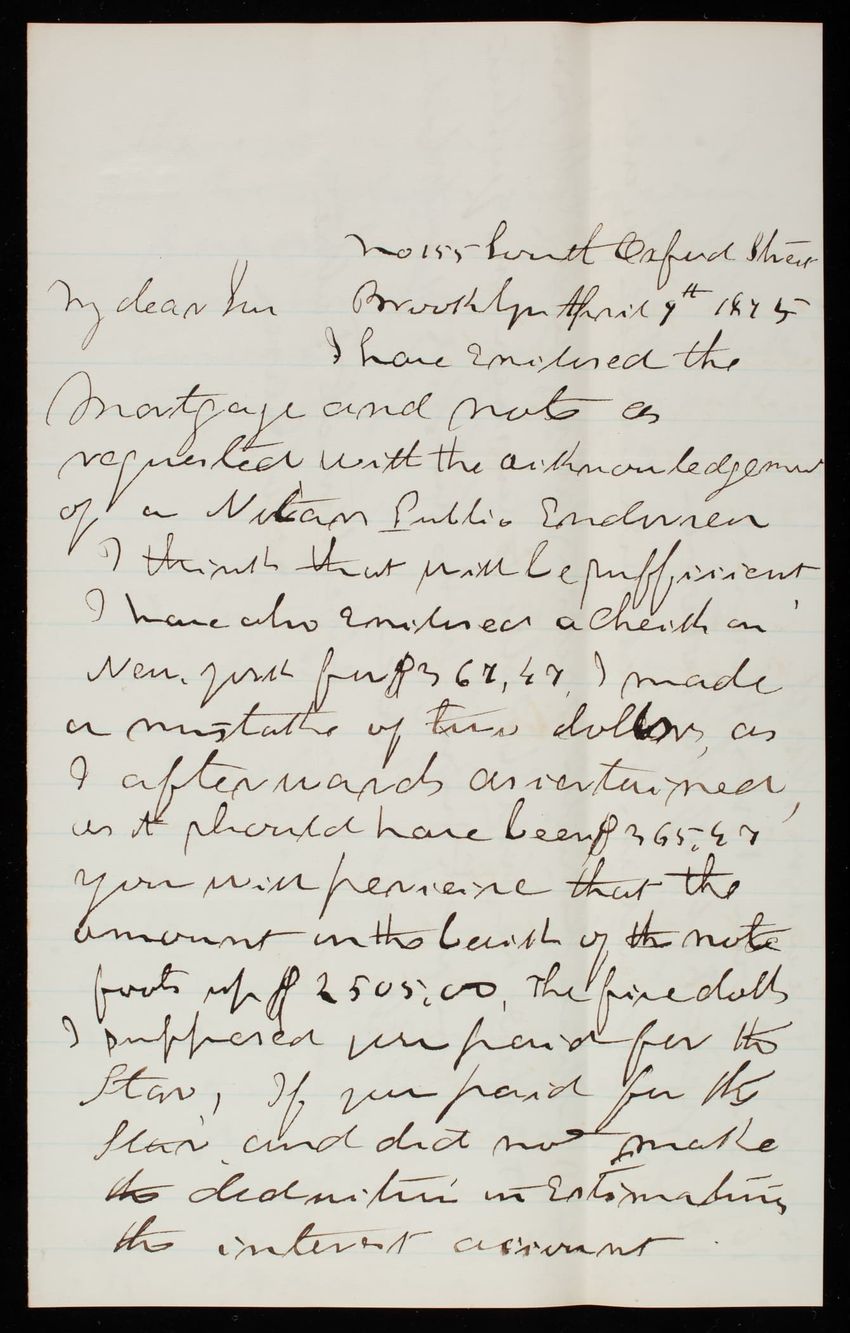 No 155 South Oxford Street
My dear Sir Brooklyn April 9th 1875
I have Enclosed the
Mortgage and note as
requested with the acknowledgement
of a Notary Public Endorsed
I think that will be sufficient
I have also Enclosed a Check on
New York for $367,47, I made
a mistake of two dollars, as
I afterwards ascertained,
as it should have been $365,47
you will perceive that the
amount on the back of the note
foots up $2505,00, The five dolls
I supposed you paid for the
Star, If you paid for the
Star and did not make
the deduction in Estimating
the interest account